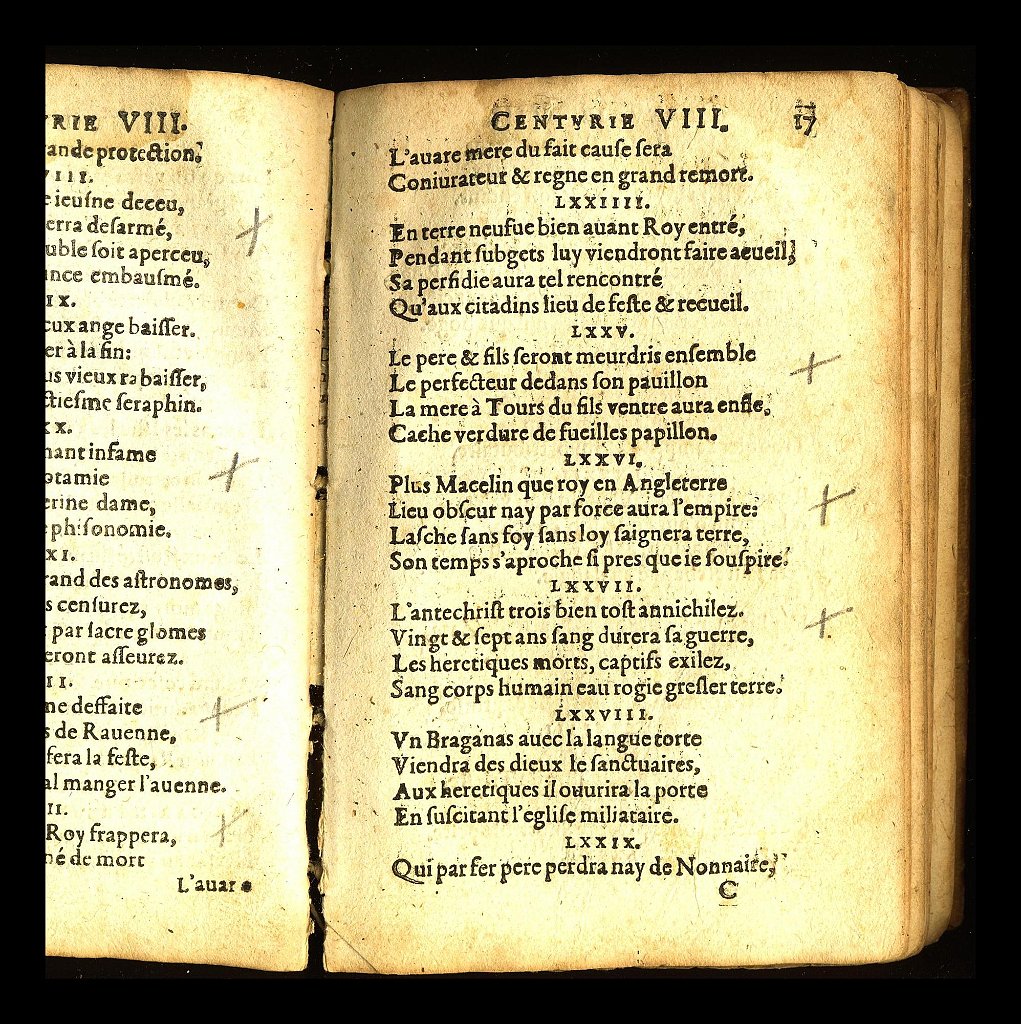 VRIE VIII.
ande protection.
VIII.
e ieuſne deceu,
erra deſarmé,
uble ſoit aperceu,
ance embauſmé.
IX.
eux ange baiſſer.
er à la fin:
us vieux rabaiſſer,
ctieſme ſeraphin.
XX.
nant infame
otamie
erine dame,
phiſonomie.
XI.
rand des aſtronomes,
s cenſurez,
par ſacre glomes
eront aſſeurez.
II.
ne deffaite
s de Rauenne,
fera la feſte,
al manger l'auenne.
II.
Roy frappera,
né de mort
L'auare
CENTVRIE VIII. 17
L'auare mere du fait cauſe ſera
Coniurateur & regne en grand remort.
LXXIIII.
En terre neufue bien auant Roy entré,
Pendant ſubgets luy viendront faire acueil,
Sa perfidie aura tel rencontré
Qu'aux citadins lieu de feſte & recueil.
LXXV.
Le pere & fils ſeront meurdris enſemble
Le perfecteur dedans ſon pauillon
La mere à Tours du fils ventre aura enfle,
Cache verdure de fueilles papillon.
LXXVI.
Plus Macelin que roy en Angleterre
Lieu obſcur nay par force aura l'empire:
Laſche ſans foy ſans loy ſaignera terre,
Son temps s'aproche ſi pres que ie ſouſpire.
LXXVII.
L'antechriſt trois bien toſt annichilez.
Vingt & ſept ans ſang durera ſa guerre,
Les heretiques morts, captifs exilez,
Sang corps humain eau rogie greſler terre.
LXXVIII.
Vn Braganas auec la langue torte
Viendra des dieux le ſanctuaires,
Aux heretiques il ouurira la porte
En ſuſcitant l'egliſe miliataire.
LXXIX.
Qui par fer pere perdra nay de Nonnaire,
C